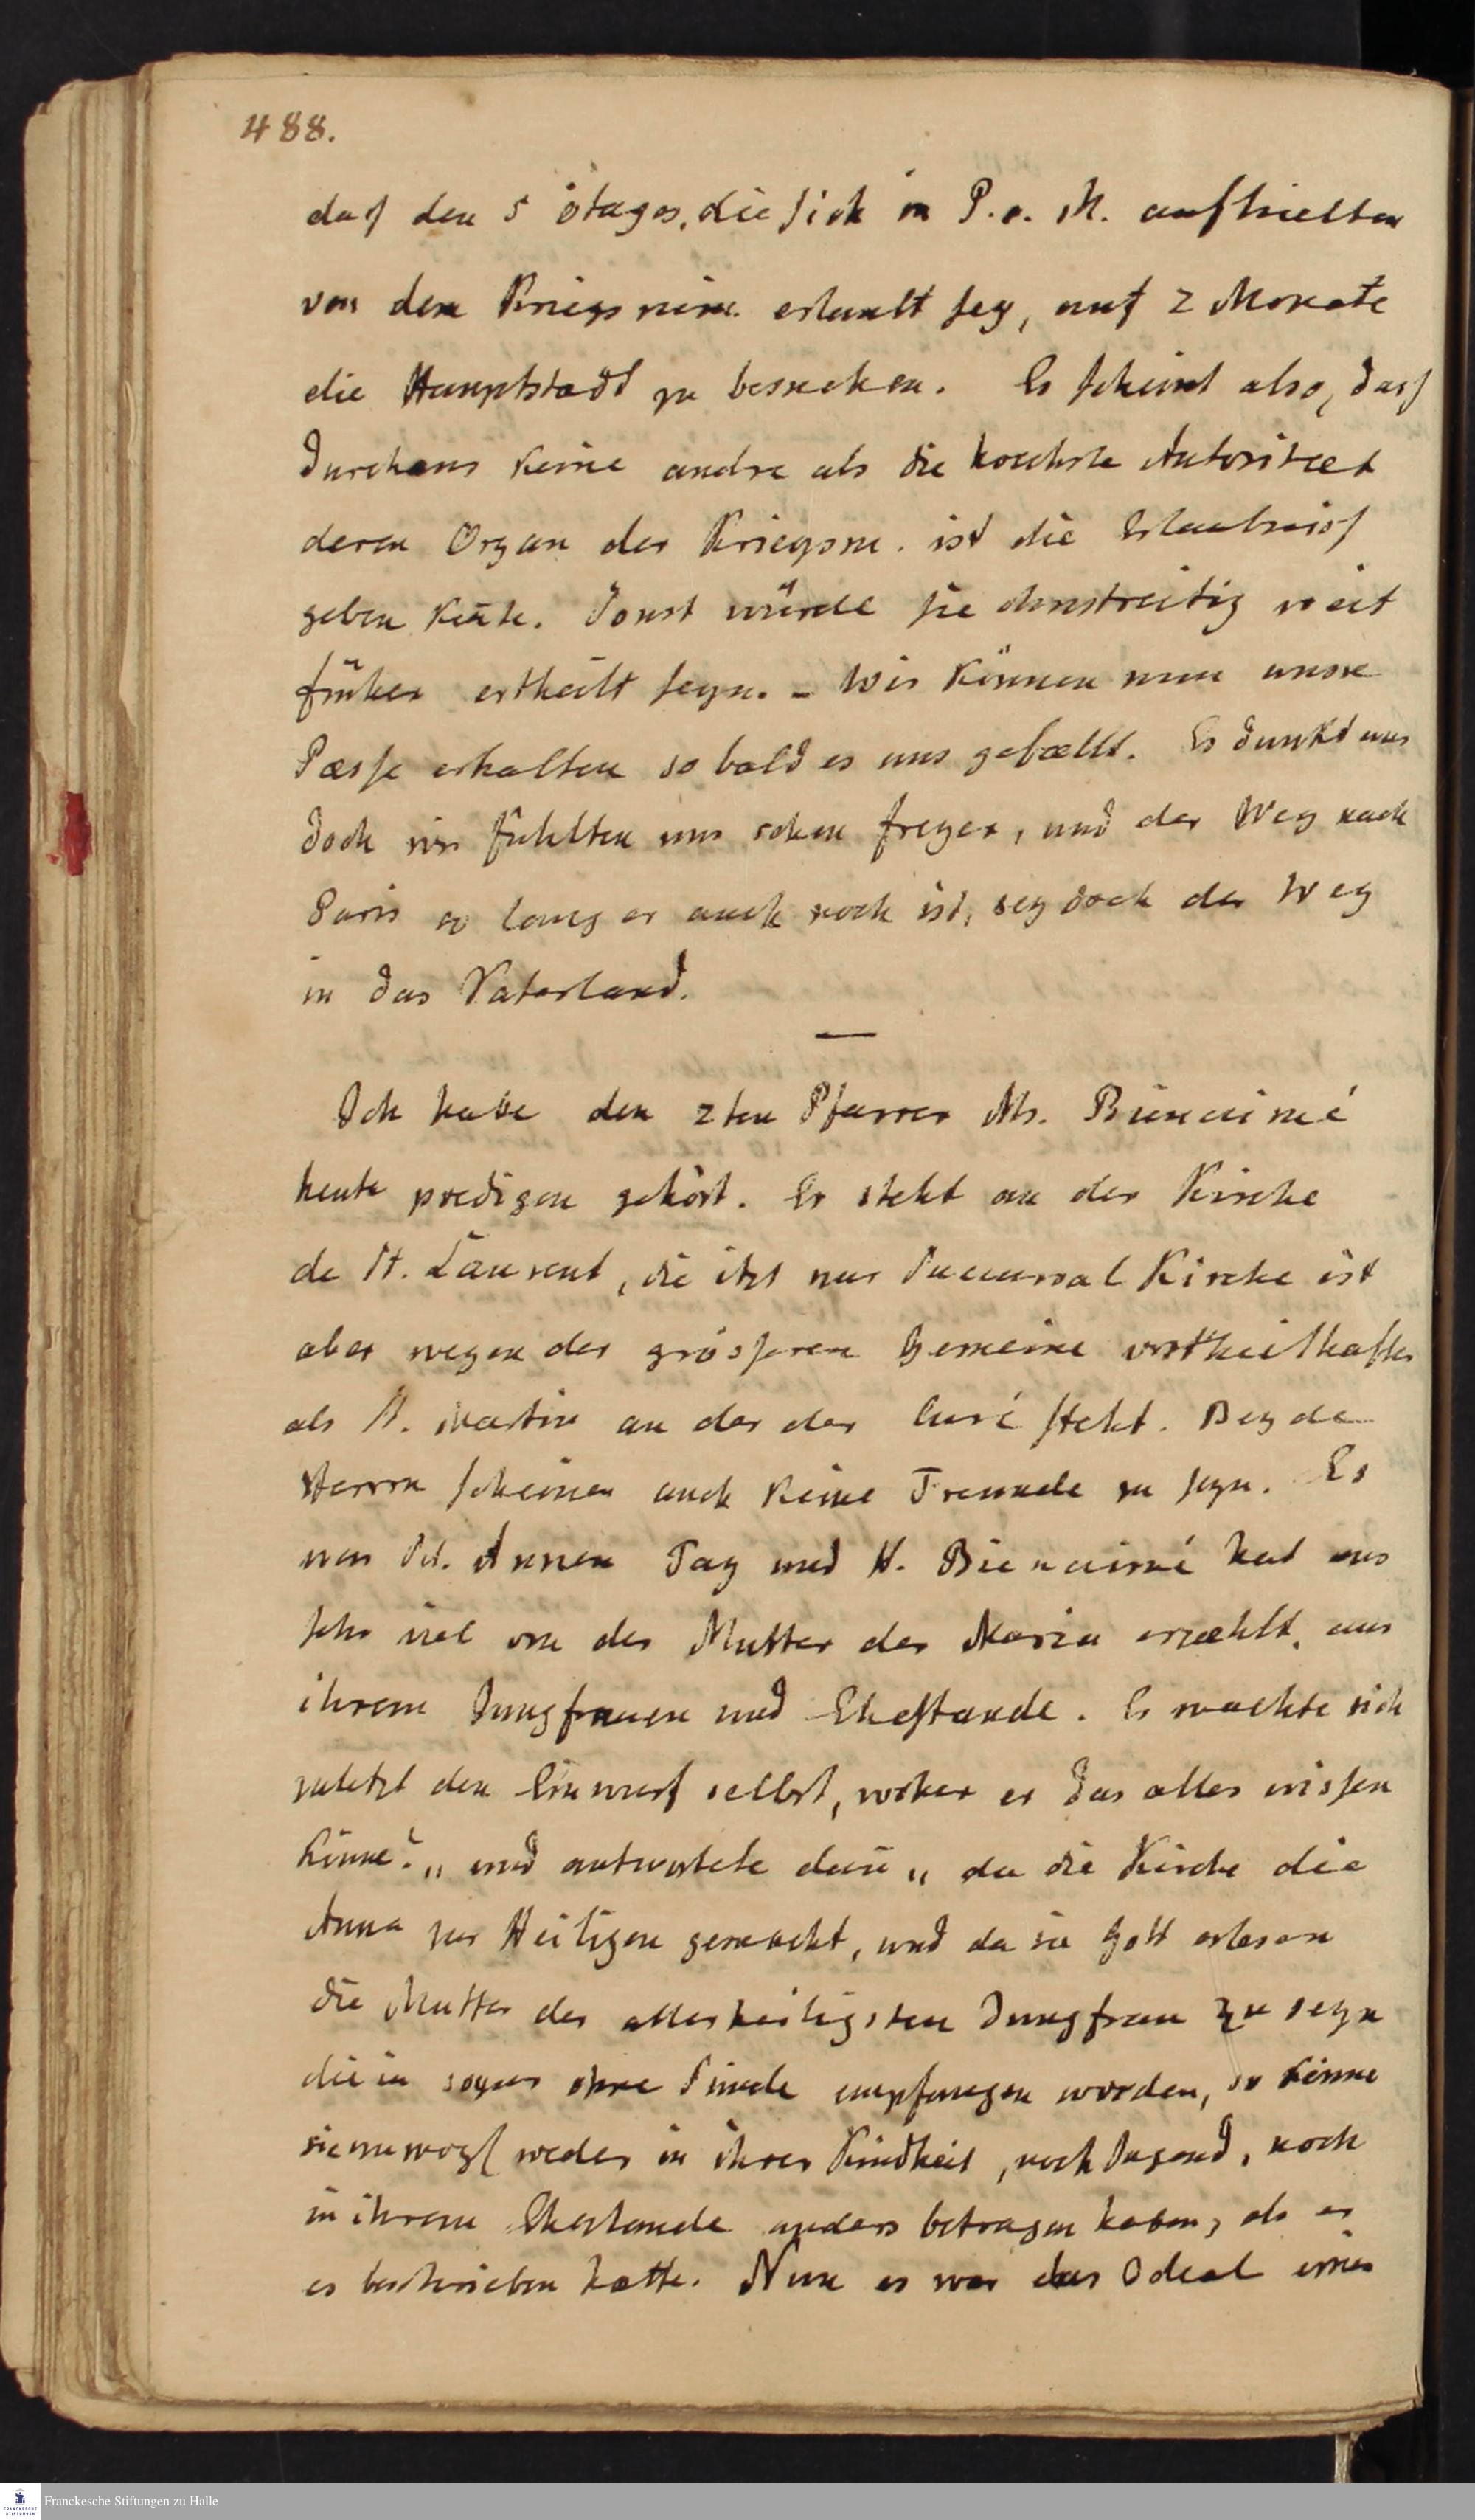 488.
daß den 5 ôtages, die sich in P. a. M. aufhielten
von dem Kriegsmin. erlaubt sey, auf 2 Monate
die Hauptstadt zu besuchen. Es scheint also, daß
durchaus keine andre als die hoechste Autoritaet
deren Organ der Kriegsm. ist die Erlaubniß
geben konte. Sonst würde sie ohnstreitig weit
früher ertheilt seyn. – Wir können nun unsre
Pæsse erhalten so bald es uns gefællt. Es dunkt uns
doch wir fühlten uns schon freyer, und der Weg nach
Paris so lang er auch noch ist, sey doch der Weg
in das Vaterland.
—
Ich habe den 2ten Pfarrer Mr. Bienaimé
heute predigen gehört. Er steht an der Kirche
de St. Laurent, die itzt nur Succursal Kirche ist
aber wegen der grösseren Gemeine vortheilhafter
als St. Martin an der der Curé steht. Beyde
Herrn scheinen auch keine Freunde zu seyn. Es
war St. Annen Tag und H. Bienaimé hat uns
sehr viel von der Mutter der Maria erzæhlt, aus
ihrem Jungfrauen und Ehestande. Er machte sich
zuletzt den Einwurf selbst, woher er das alles wissen
könne? „ und antwortete dañ „ da die Kirche die
Anna zur Heiligen gemacht, und da sie Gott erlesen
die Mutter der allerheiligsten Jungfrau zu seyn
die ja sogar ohne Sünde empfangen worden, so könne
sie weder in ihrer Kindheit, noch Jugend, noch
in ihrem Ehestande anders betragen haben, als er
es beschrieben hatte. Nun es war das Ideal einer
Franckesche Stiftungen zu Halle